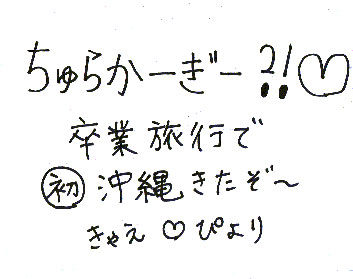 ちゅらかーぎー?!♡
卒業旅行で
㊞初 沖縄きたぞ〜
きゃえ♡ぴより